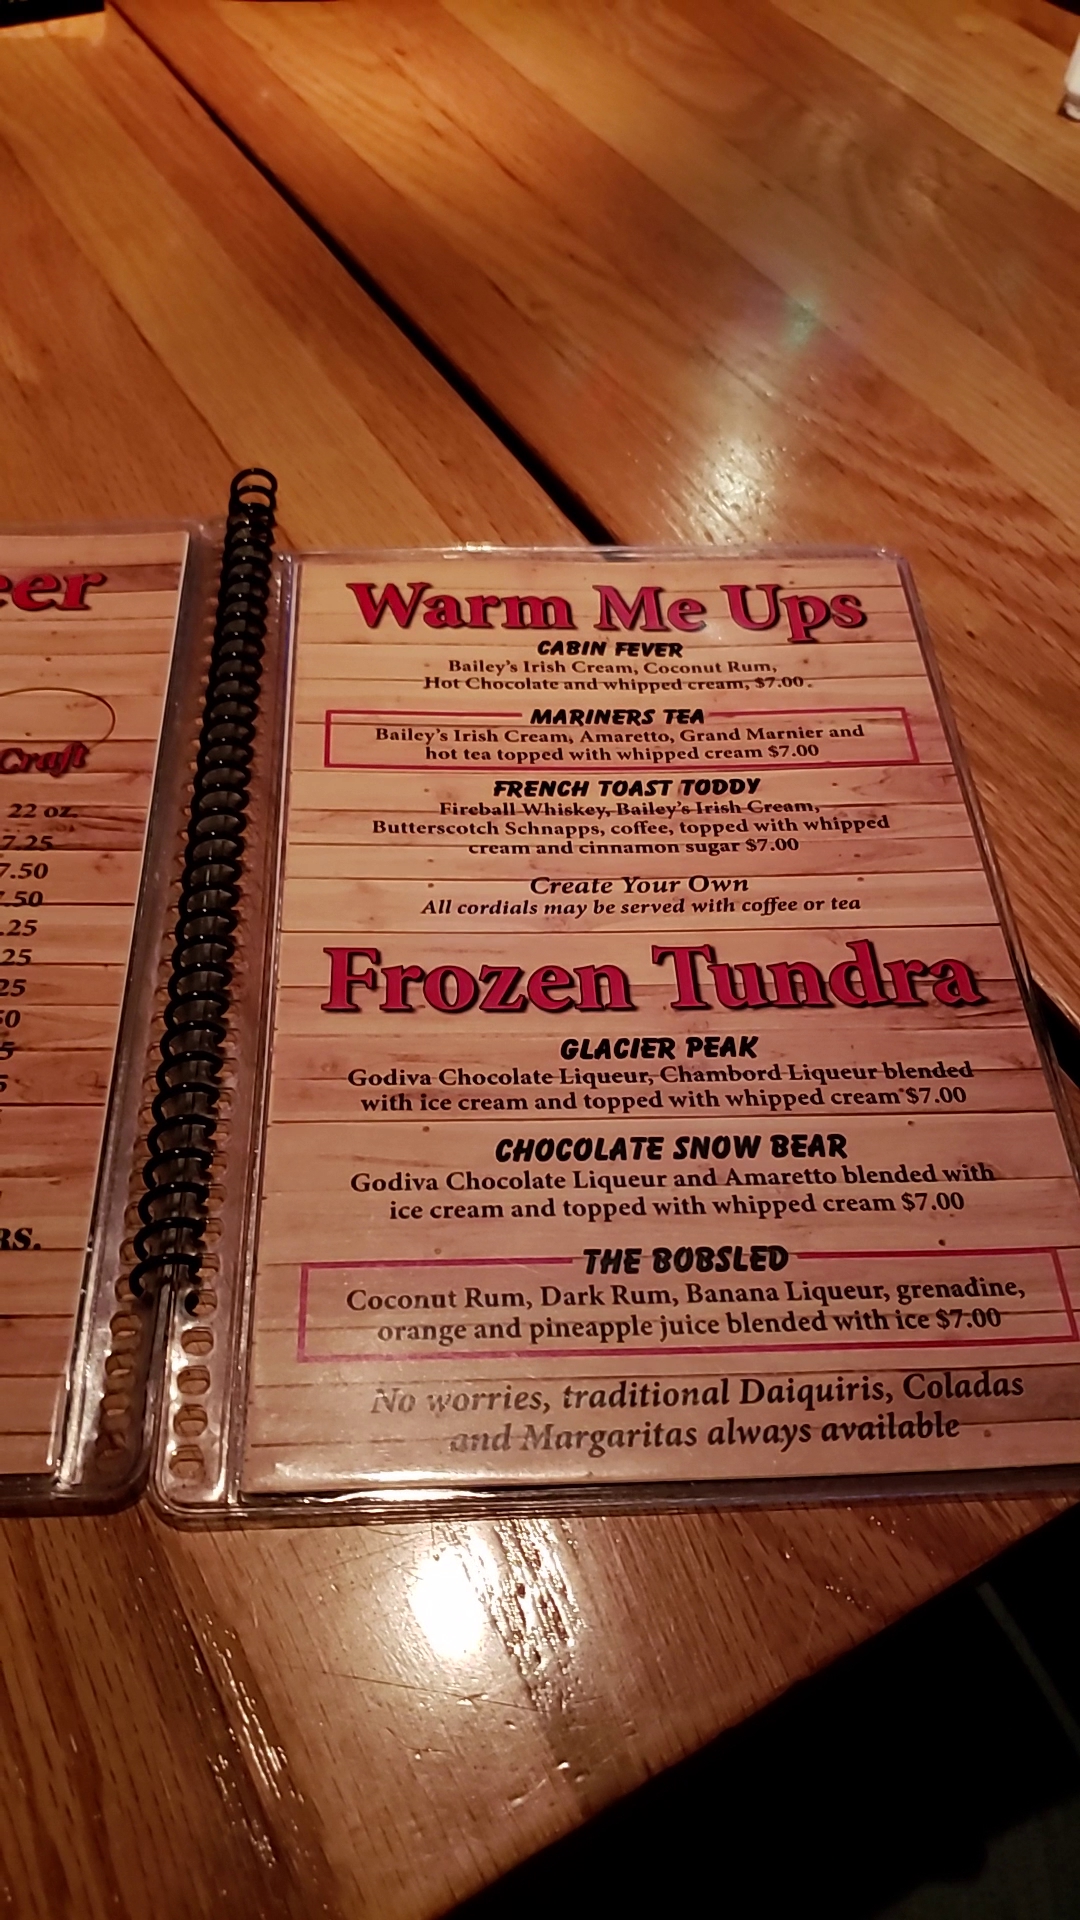 Craft
22 oz.
7.25
7.50
.50
.25
25
25
Warm Me Ups
CABIN FEVER
Bailey's Irish Cream, Coconut Rum,
Hot Chocolate and whipped cream, $7.00
MARINERS TEA
Bailey's Irish Cream, Amaretto, Grand Marnier and
hot tea topped with whipped cream $7.00
FRENCH TOAST TODDY
Fireball Whiskey, Bailey's Irish Cream,
Butterscotch Schnapps, coffee, topped with whipped
cream and cinnamon sugar $7.00
Create Your Own
All cordials may be served with coffee or tea
Frozen Tundra
GLACIER PEAK
Godiva Chocolate Liqueur, Chambord Liqueur blended
with ice cream and topped with whipped cream $7.00
CHOCOLATE SNOW BEAR
Godiva Chocolate Liqueur and Amaretto blended with
ice cream and topped with whipped cream $7.00
THE BOBSLED
Coconut Rum, Dark Rum, Banana Liqueur, grenadine,
orange and pineapple juice blended with ice $7.00
No worries, traditional Daiquiris, Coladas
and Margaritas always available